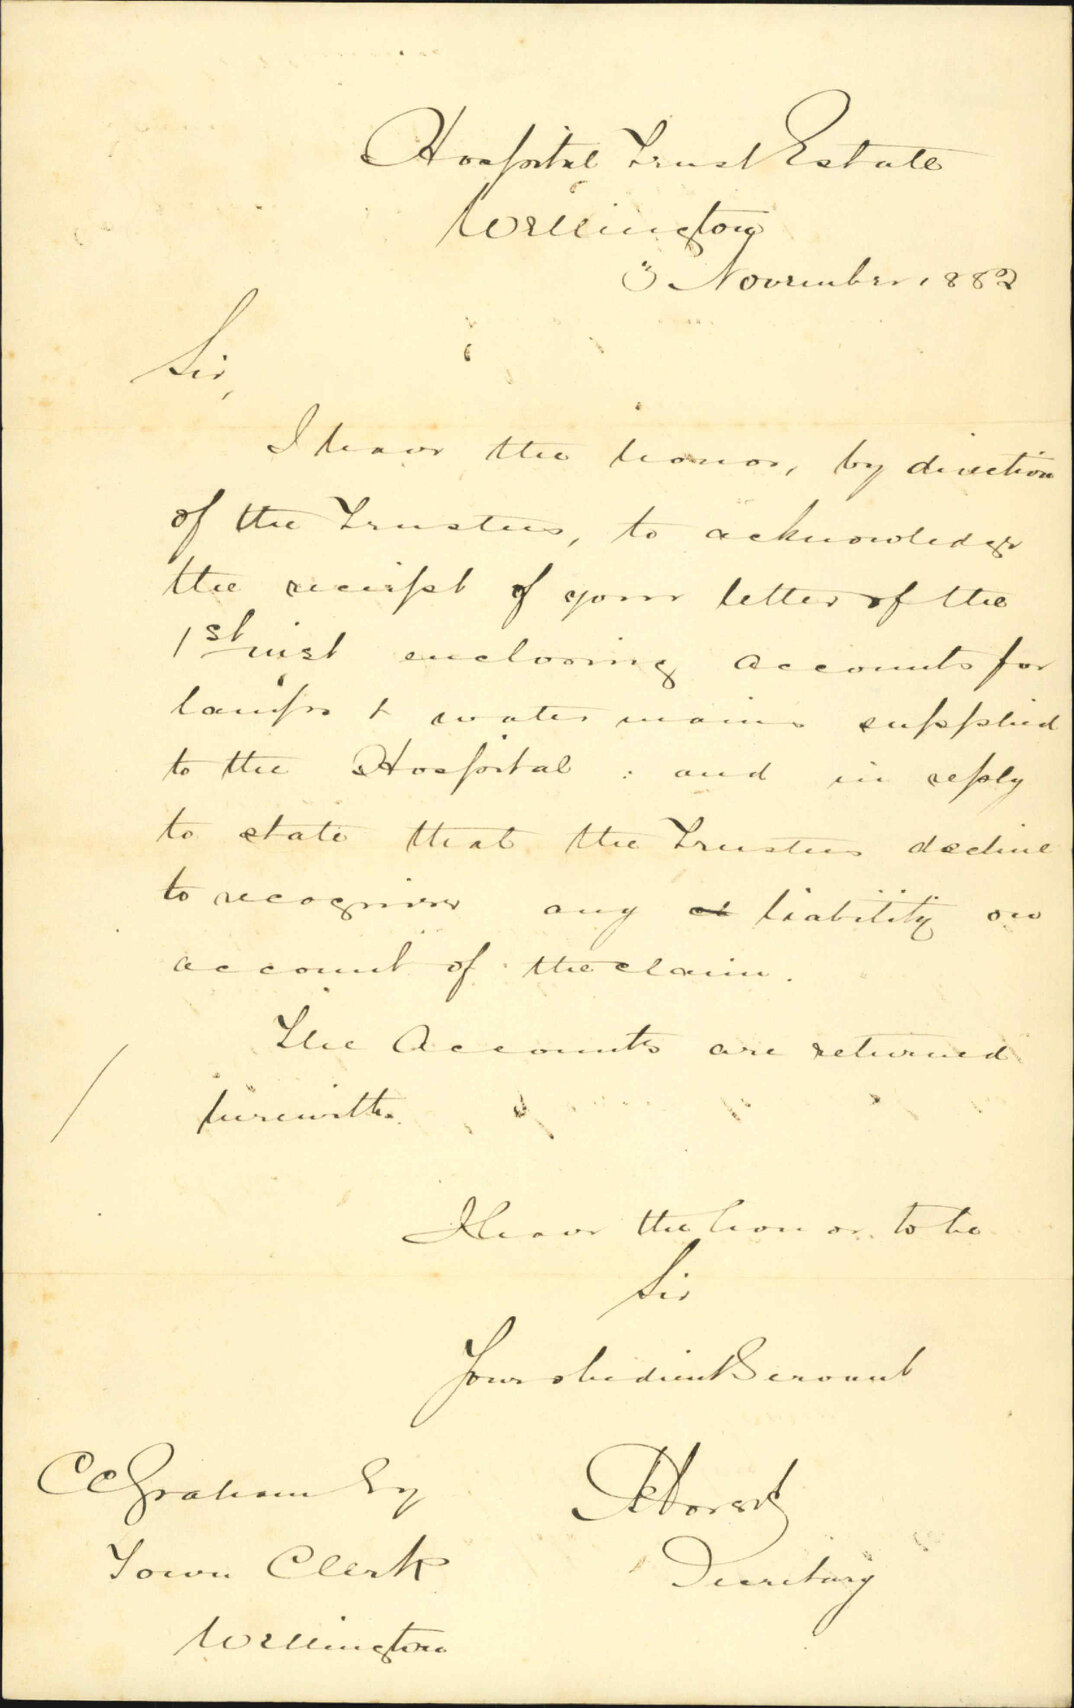 Hospital Trust Estate
Wellington
3 November 1882
Sir,
I have the honor, by direction
of the Trustees, to acknowledge
the receipt of your letter of the
1st inst enclosing accounts for
lamps & water mains supplied
to the Hospital : and in reply
to state that the Trustees decline
to recognise any liability on
account of the claim.
The Accounts are returned
herewith.
I have the honor to be
Sir
Your obedient Servant
C C Graham Esq
Town Clerk
Secretary
Wellington